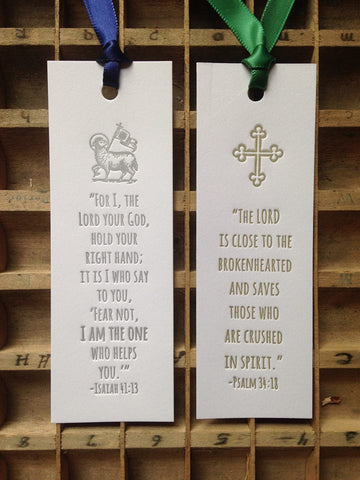 "For I, the
Lord your God,
hold your
right hand;
it is I who say
to you,
'Fear not,
I am the one
who helps
you.'"
-Isaiah 41:13
"The LORD
is close to the
brokenhearted
and saves
those who
are crushed
in spirit."
-Psalm 34:18